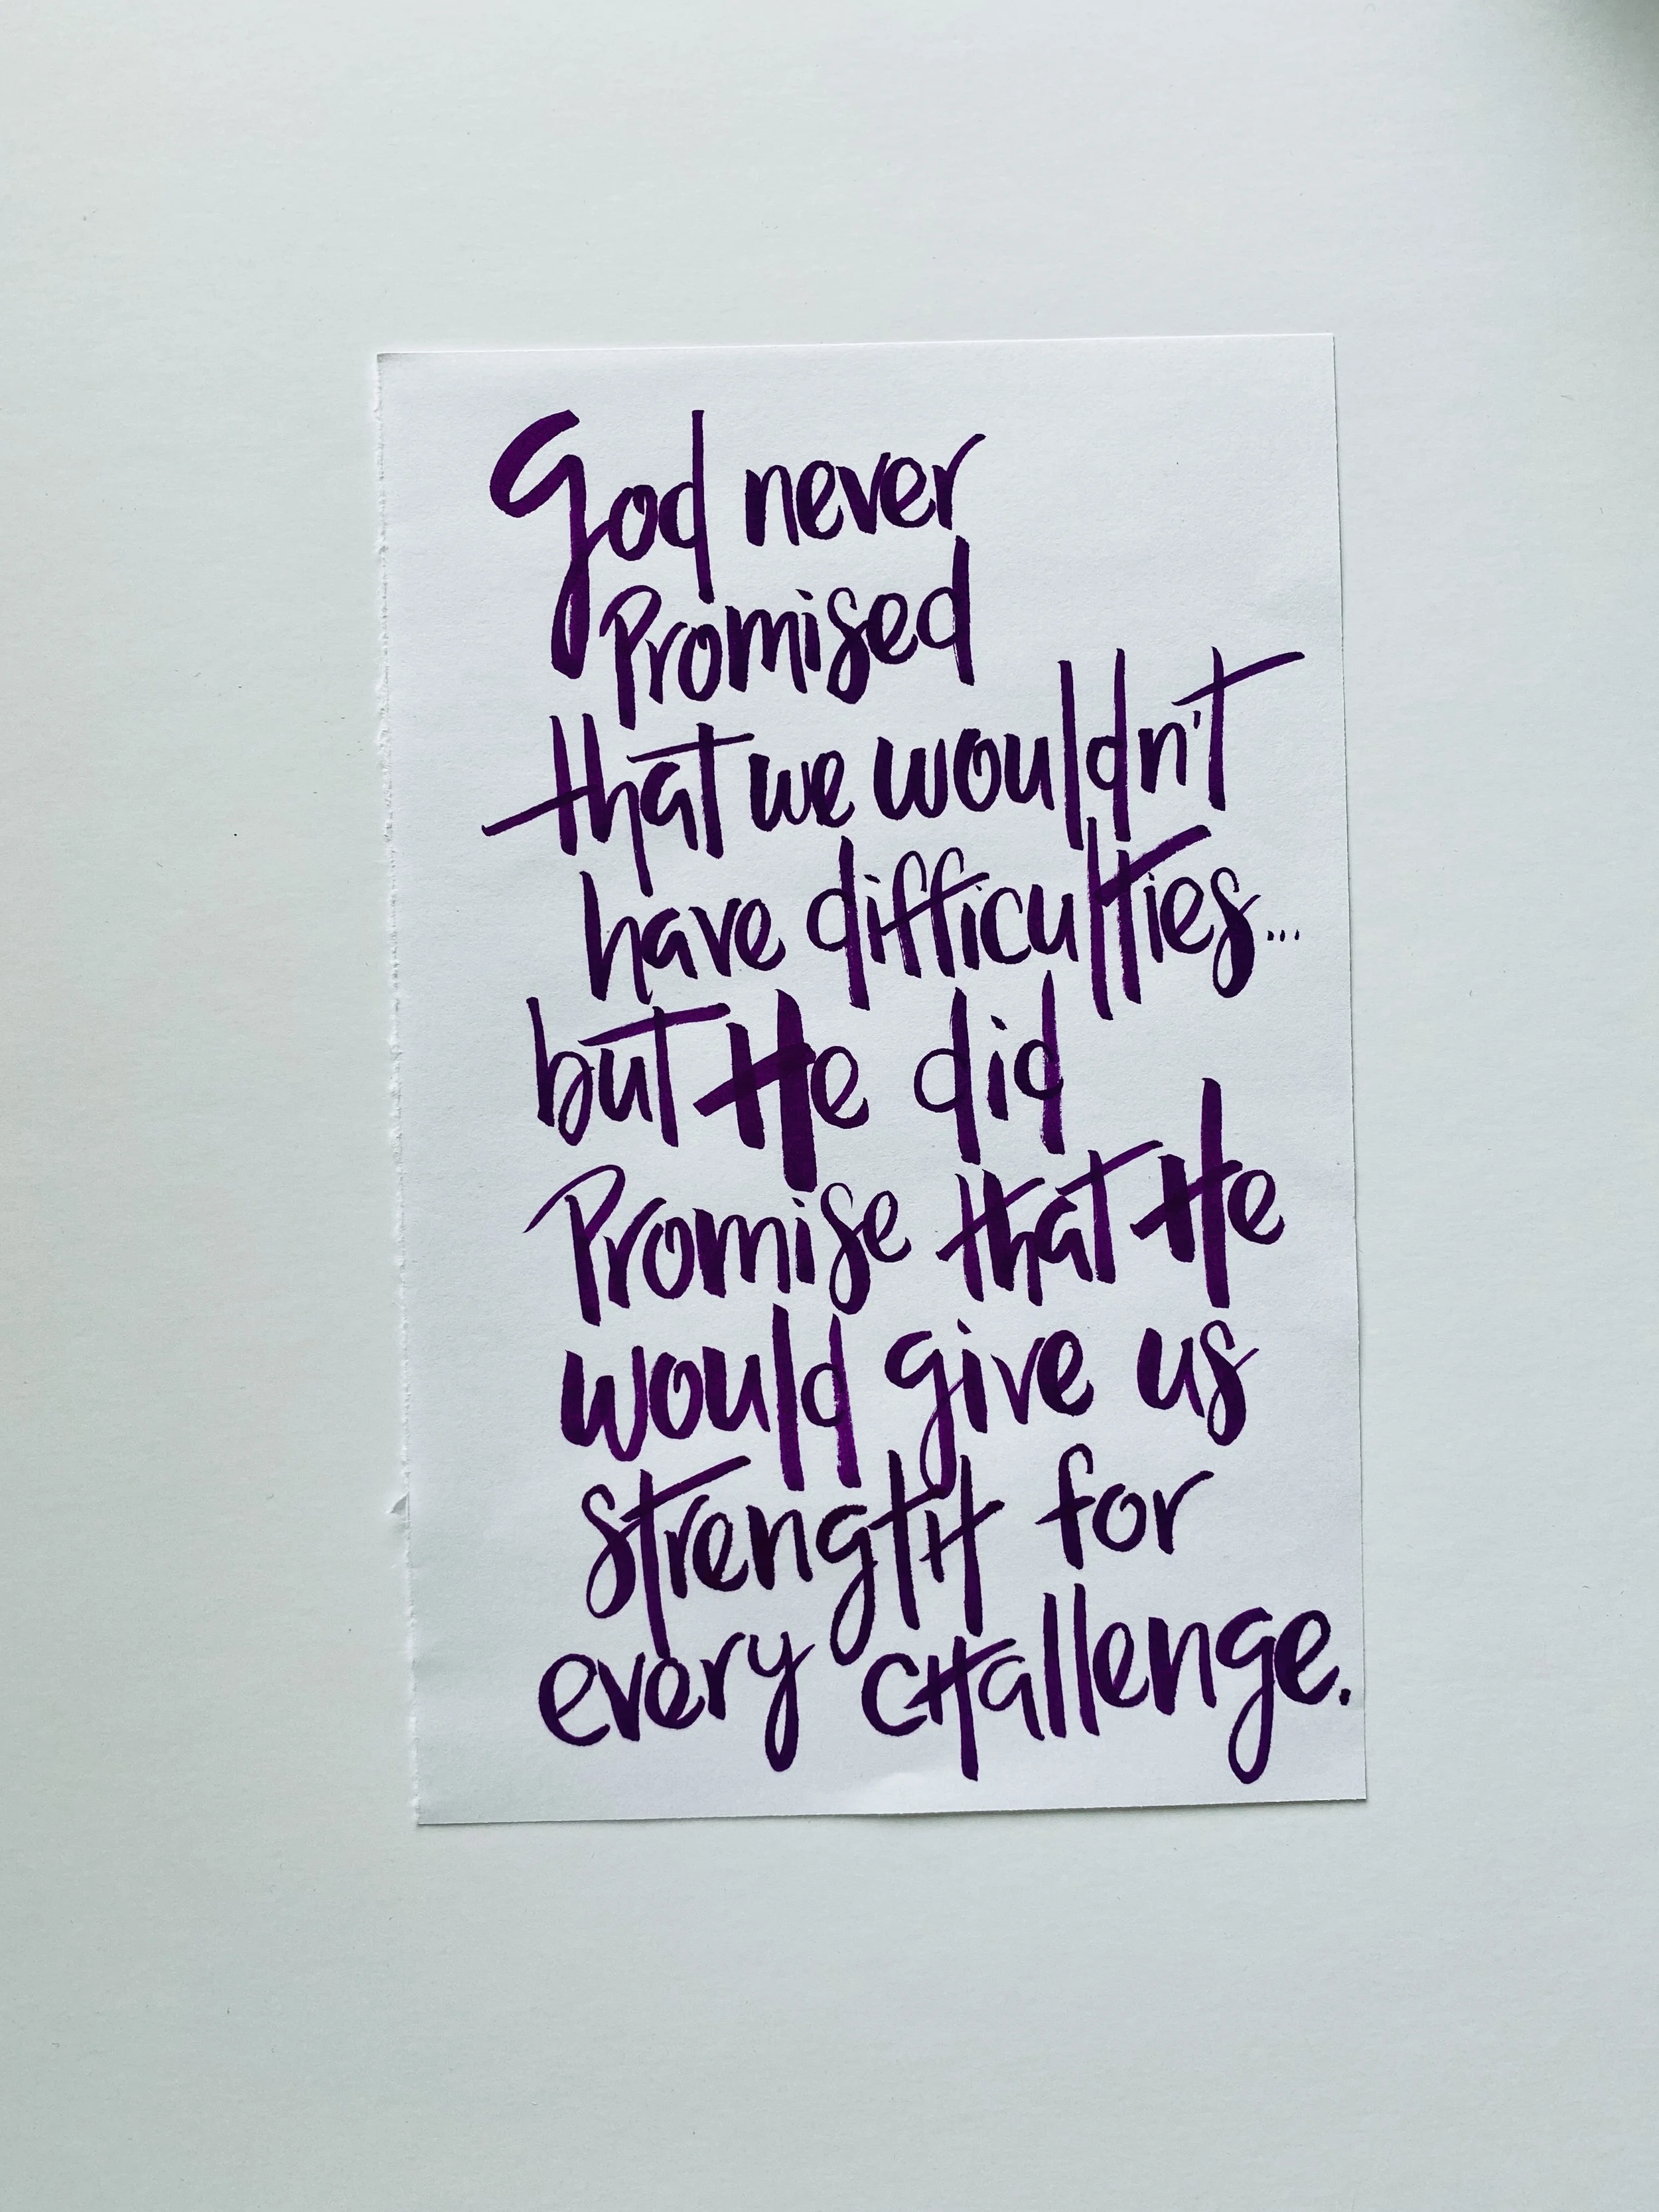 God never
Promised
that we wouldn't
have difficulties...
but He did
Promise that He
would give us
strength for
every challenge.